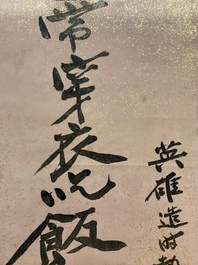 英雄造时
常穿衣吃飯